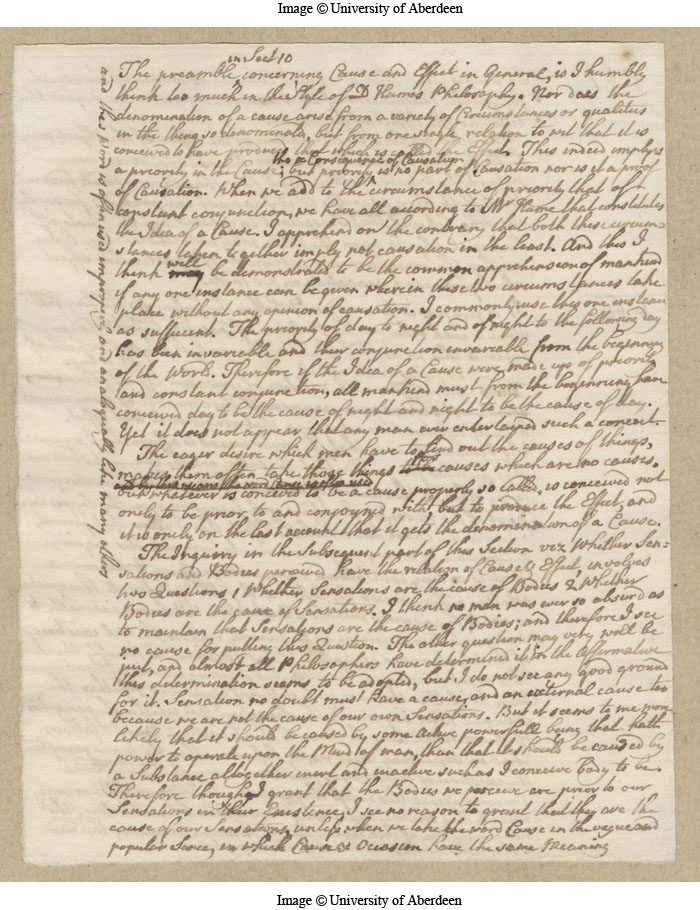 Image © University of Aberdeen
in Sect 10
The preamble concerning Cause and Effect in General, is I humbly
think too much in the Style of D Humes Philosophy. Nor does the
denomination of a cause arise from a variety of Circumstances or qualitus
in the thing so denominate, but from one single relation to wit that it is
conceived to have produced that which is called the Effect. This indeed implys
tho a Consequence of Causation
a priority in the Cause; but priority is no part of Causation nor is it a proof
of Causation. When we add to the circumstance of priority that of
constant conjunction, we have all according to Mr Hume that constitutes
the Idea of a Cause. I apprehend on the contrary that both these circum=
stances taken together imply not causation in the least. And this I
think will be demonstrated to be the common apprehension of mankind
if any one instance can be given wherein these two circumstances take
place without any opinion of causation. I commonly use this one instance
as sufficient. The priority of day to night and of night to the following day
has been invariable and their conjunction invariable from the beginning
of the World. Therefore if the Idea of a Cause were made up of priority
and constant conjunction, all mankind must from the beginning have
conceived day to be the cause of night and night to be the cause of day.
Yet it does not appear that any man ever entertained such a conceit.
The eager desire which men have to find out the causes of things,
makes them often take those things for causes which are no causes.
and the Word is often used improperly and analogically like many others
but whatever is conceived to be a cause properly so called, is conceived not
onely to be prior to and conjoyned with but to produce the Effect, and
it is onely on the last account that it gets the denomination of a Cause.
The Inquiry in the Subsequent part of this Section viz Whether Sen=
sations and Bodies perceived have the relation of Cause & Effect, involves
two Questions 1 Whether Sensations are the cause of Bodies 2 Whether
Bodies are the cause of Sensations. I think no man was ever so absurd as
to maintain that Sensations are the cause of Bodies; and therefore I see
no cause for putting this Question. The other question may very well be
put, and almost all Philosophers have determined it in the affirmative
this determination seems to be adopted, but I do not see any good ground
for it. Sensation no doubt must have a cause, and an external cause too
because we are not the cause of our own Sensations. But it seems to me more
likely that it should be caused by some active powerfull being that hath
power to operate upon the Mind of man, than that it should be caused by
a Substance altogether inert and inactive such as I conceive body to be.
Therefore though I grant that the Bodies we perceive are prior to our
Sensations in their Existence, I see no reason to grant that they are the
cause of our Sensations, unless when we take the word Cause in the vague and
popular Sence, in which Cause & Occasion have the same Meaning
Image © University of Aberdeen